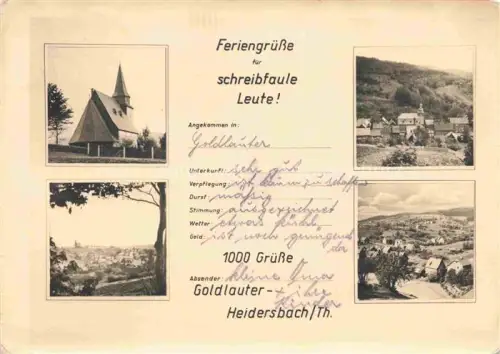 Feriengrüße
für
schreibfaule
Leute!
Angekommen in:
Goldlauter
Unterkunft: sehr gut
Verpflegung: ist kaum zu schaffen
Durst: mäßig
Stimmung: ausgezeichnet
Wetter: etwas kühl
Geld: ist noch genügend
da
1000 Grüße
Absender: kleine Oma
+ ihre
Kinder
Goldlauter-
Heidersbach/Th.